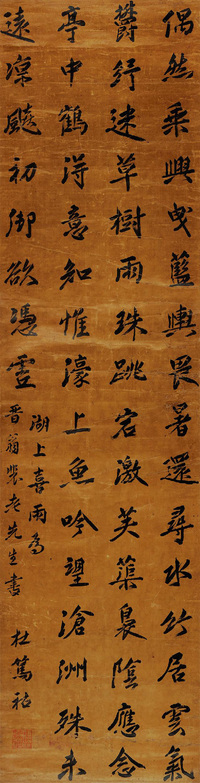 偶然乘興曳藍輿畏暑還尋水竹居雲氣
欝紆迷草樹雨珠跳宕激芙蕖裊陰應念
亭中鶴淂意知惟濠上魚吟望滄洲殊未
遠凉飈初御欲憑虛
湖上喜雨為
晋翁裴老先生書
杜篤祜